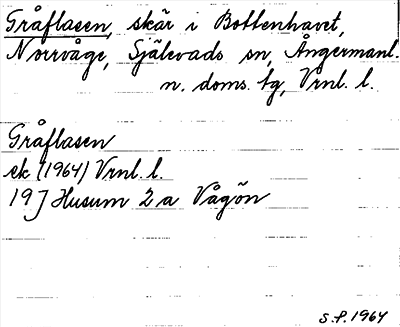 Gråflasen, skär i Bottenhavet,
Norrvåge, Själevads sn, Ångermanl.
n. doms. tg, Vrnl. l.
Gråflasen
ek (1964) Vrnl. l.
19J Husum 2a Vågön
S.P. 1964